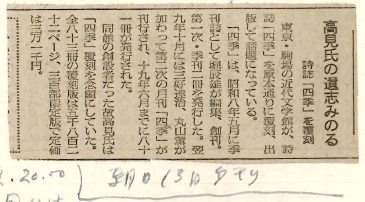 高見氏の遺志みのる
詩誌「四季」を復刻
東京・駒場の近代文学館が、詩
誌「四季」を原本通りに復刻、出
版して話題になっている。
「四季」は、昭和八年五月に季
刊誌として堀辰雄が編集、創刊。
第一次・季刊二冊を発行した。翌
九年十月には三好達治、丸山薫が
加わって第二次の月刊「四季」が
刊行され、十九年六月までに八十
一冊が発行された。
同館の創設者だった故高見氏は
「四季」復刻を念願にしていた。
全八十三冊の復刻版は五千八百二
十二ページ。三百部限定版で定価
は三万一千円。
20.00
朝日 13日 夕刊